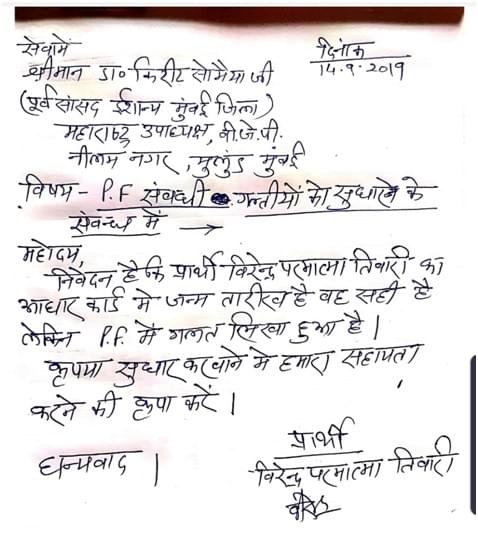 सेवामें
श्रीमान डा० किरीट सोमैया जी
दिनांक
14.9.2019
(पूर्व सांसद ईशान्य मुंबई जिला)
महाराष्ट्र उपाध्यक्ष, बी.जे.पी.
नीलम नगर, मुलुंड मुंबई
विषय - P.F संबधी गल्तीयों को सुधारने के
संबन्ध में →
महोदय,
निवेदन है कि प्रार्थी विरेन्द्र परमात्मा तिवारी का
आधार कार्ड मे जन्म तारीख है वह सही है
लेकिन P.F. में गलत लिखा हुआ है।
कृपया सुधार करवाने मे हमारा सहायता
करने की कृपा करें।
प्रार्थी
धन्यवाद।
विरेन्द्र परमात्मा तिवारी